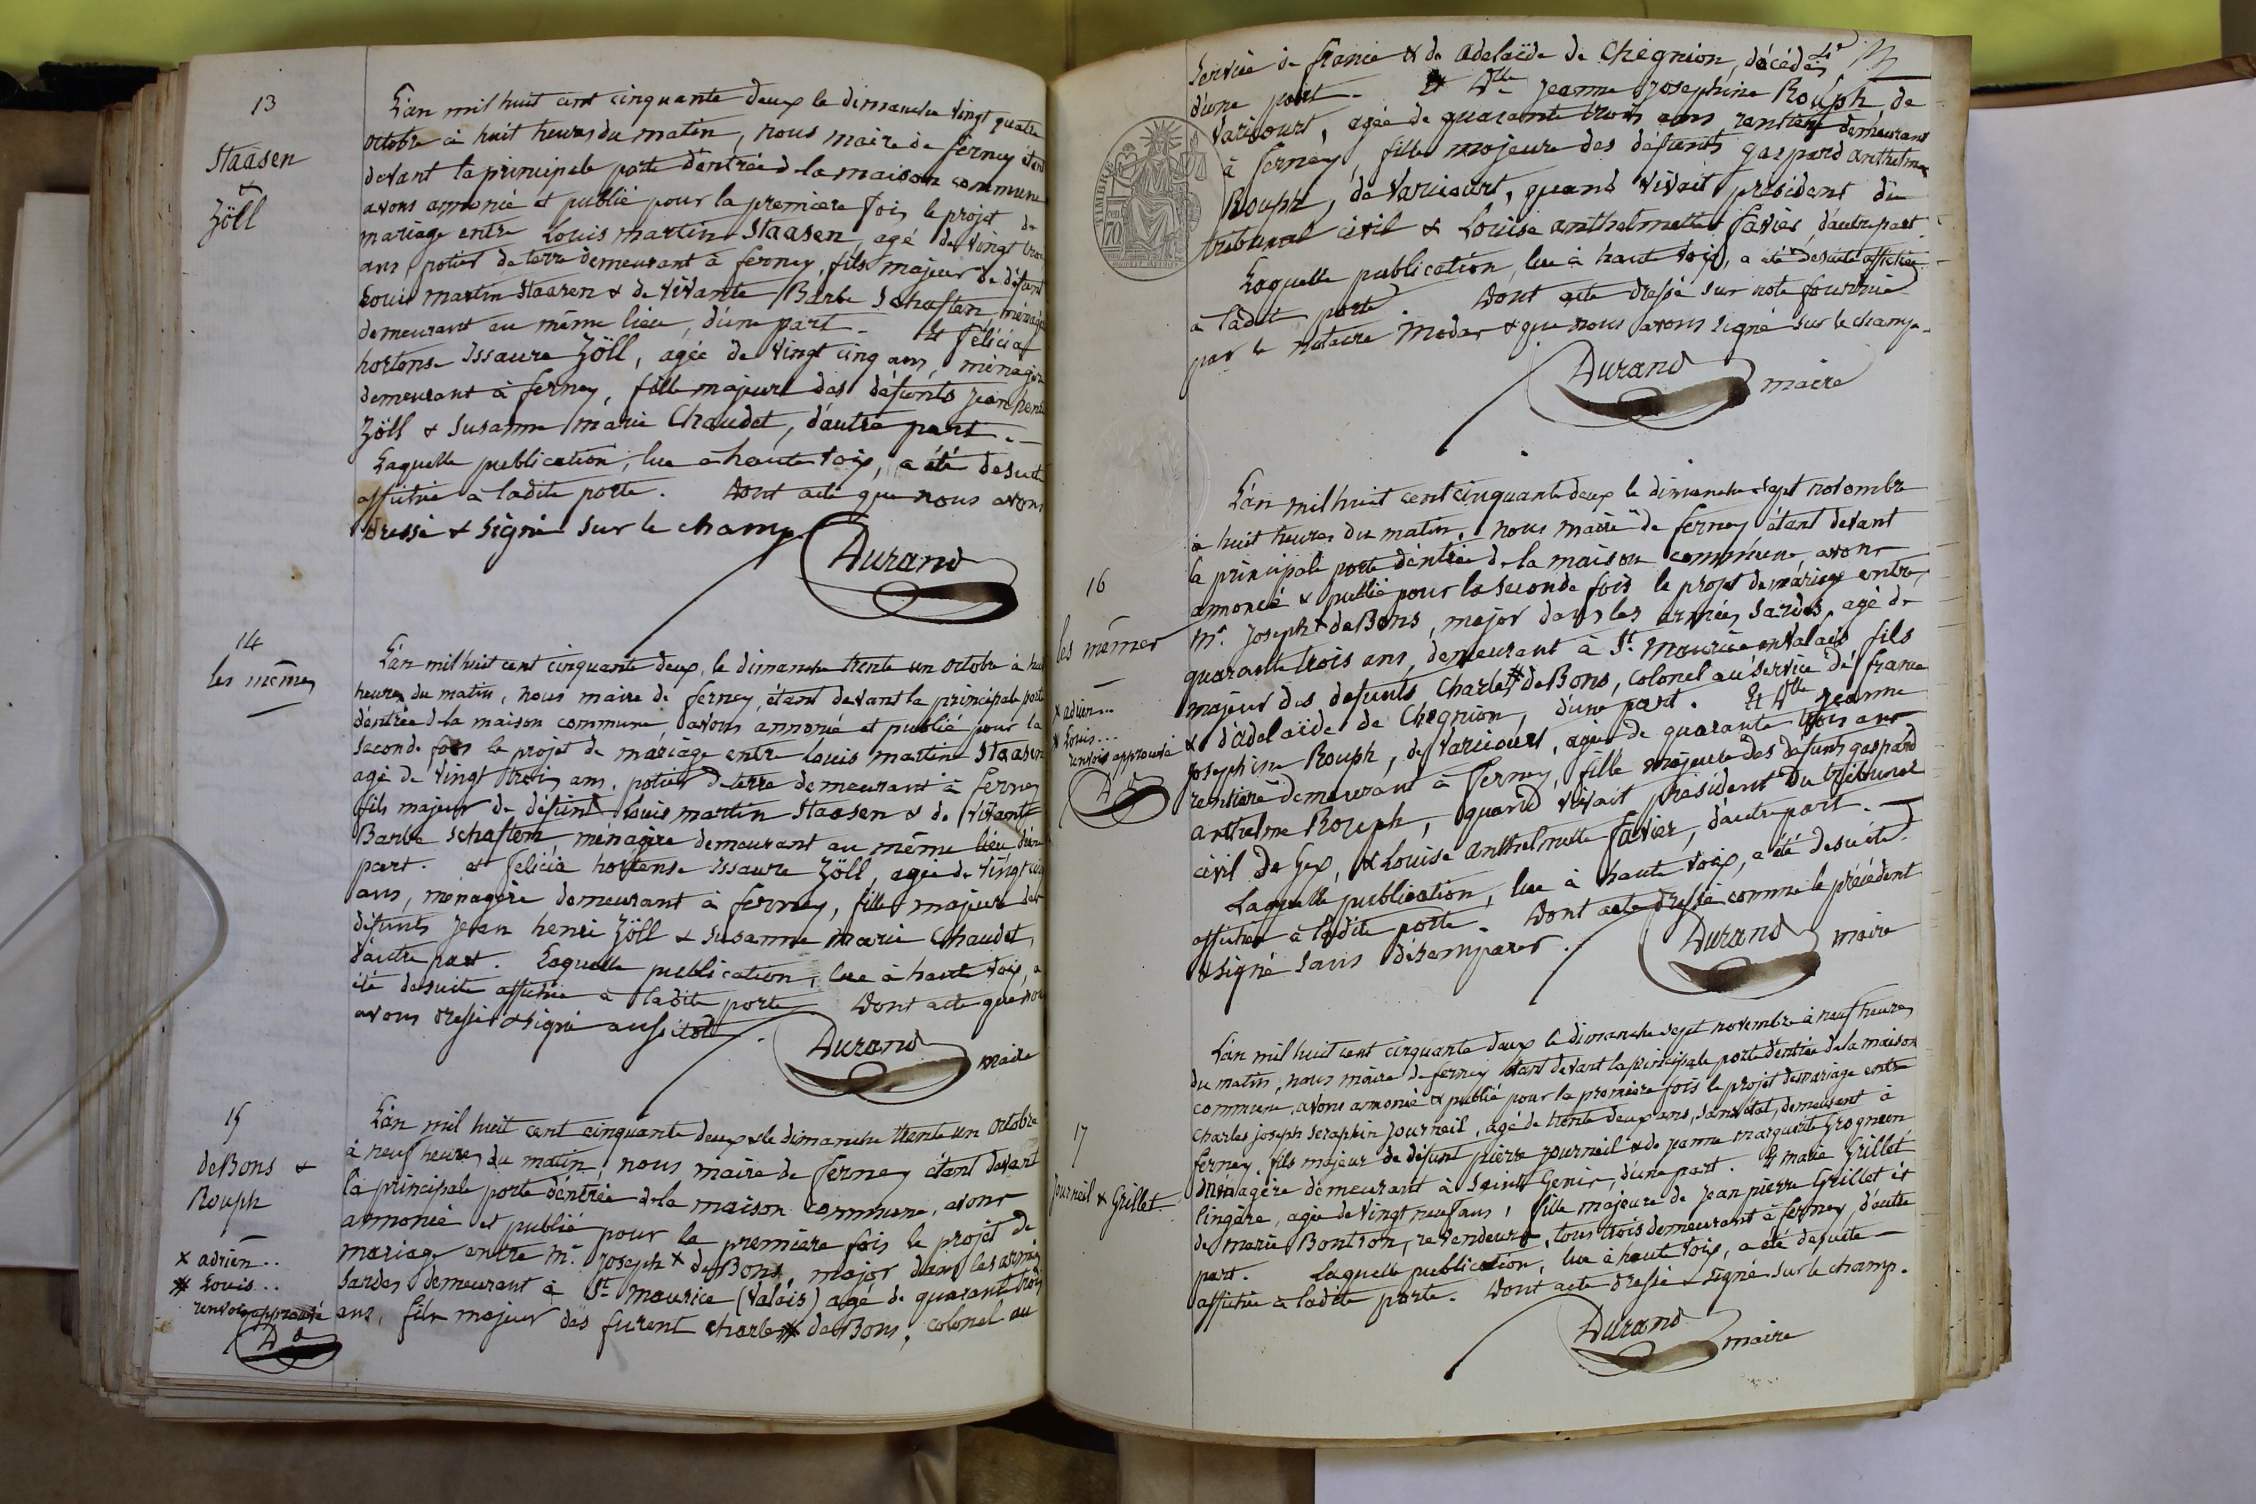 13
Staasen
&
Zöll
L'an mil huit cent cinquante deux le dimanche vingt quatre
octobre à huit heures du matin, nous maire de ferney étant
devant la principale porte d'entrée de la maison commune
avons annoncé et publié pour la premiere fois le projet de
mariage entre Louis martin Staasen, agé de vingt trois
ans, potier de terre demeurant à ferney, fils majeur de défunt
Louis martin Staasen & de vivante Barbe Schaften, ménagère
demeurant au même lieu, d'une part. Et Félicia
hortense Issaure Zöll, agée de vingt cinq ans, ménagère
demeurant à ferney, fille majeure des défunts Jean henri
Zöll & Susanne marie Chaudet, d'autre part.
Laquelle publication, lue à haute voix, a été desuite
affichée à ladite porte. Dont acte que nous avons
dressé & signé sur le champ
Durand
14
les mêmes
L'an mil huit cent cinquante deux, le dimanche trente un octobre à huit
heures du matin, nous maire de ferney, étant devant la principale porte
d'entrée de la maison commune avons annoncé et publié pour la
seconde fois le projet de mariage entre louis martin Staasen
agé de vingt trois ans, potier de terre demeurant à ferney
fils majeur de défunt Louis martin Staasen & de vivante
Barbe Schaften, ménagère demeurant au même lieu d'une
part. et félicia hortense Issaure Zöll, agée de vingt cinq
ans, ménagère demeurant à ferney, fille majeure des
défunts Jean henri Zöll & Susanne Marie Chaudet,
d'autre part. Laquelle publication, lue à haute voix, a
été desuite affichée à ladite porte. Dont acte que nous
avons dressé & signé aussitôt.
Durand
maire
15
deBons &
Rouph
x adrien..
# Louis..
renvois approuvé
L'an mil huit cent cinquante deux & le dimanche trente un octobre
à neuf heures du matin, nous maire de ferney étant devant
la principale porte d'entrée de la maison commune, avons
annoncé et publié pour la premiere fois le projet de
mariage entre Mr. Joseph x deBons, major dans les armées
Sardes demeurant à St. maurice (Valais) agé de quarante trois
ans, fils majeur des furent Charles # deBons, colonel au
service de france & de adelaïde de Chegnion, décédés,
d'une part. Et Dlle Jeanne Josephine Rouph de
Varicourt, agée de quarante trois ans rentiere demeurant
à ferney, fille majeure des défunts gaspard anthelme
Rouph, de Varicourt, quand vivait président du
tribunal civil & Louise anthelmette Favier, d'autre part.
Laquelle publication, lue à haute voix, a été desuite affichée
à ladite porte. Dont acte dressé sur note fournie
par le notaire Modas & que nous avons signé sur le champ.
Durand
maire
16
les mêmes
x adrien...
# Louis...
renvois approuvé
L'an mil huit cent cinquante deux le dimanche sept novembre
à huit heures du matin, nous maire de ferney étant devant
la principale porte d'entrée de la maison commune avons
annoncé & publié pour la seconde fois le projet de mariage entre
Mr. Joseph x deBons, major dans les armées Sardes, agé de
quarante trois ans, demeurant à St. Maurice en Valais fils
majeur des defunts Charles # deBons, colonel au service de france
& d'adelaïde de Chegnion, d'une part. Et Dlle Jeanne
Josephine Rouph, de Varicourt, agée de quarante trois ans
rentiere demeurant à ferney, fille majeure des defunts gaspard
anthelme Rouph, quand vivait président du tribunal
civil de Gex, & Louise anthelmette Favier, d'autre part.
Laquelle publication, lue à haute voix, a été desuite
affichée à ladite porte. Dont acte dressé comme le précédent
& signé sans désemparer.
Durand
maire
17
Journeil & Grillet
L'an mil huit cent cinquante deux le dimanche sept novembre à neuf heures
du matin, nous maire de ferney étant devant la principale porte d'entrée de la maison
commune, avons annoncé & publié pour la première fois le projet de mariage entre
Charles joseph Seraphin Journeil, agé de trente deux ans, sans état, demeurant à
ferney, fils majeur de défunt pierre Journeil & de jeanne marguerite Grognion
ménagère demeurant à Saint Genis, d'une part. Et marie Grillet
lingère, agée de vingt neuf ans, fille majeure de Jean pierre Grillet et
de marie Bontron, revendeurs, tous trois demeurant à ferney, d'autre
part. Laquelle publication, lue à haute voix, a été desuite
affichée à ladite porte. Dont acte dressé & signé sur le champ.
Durand
maire